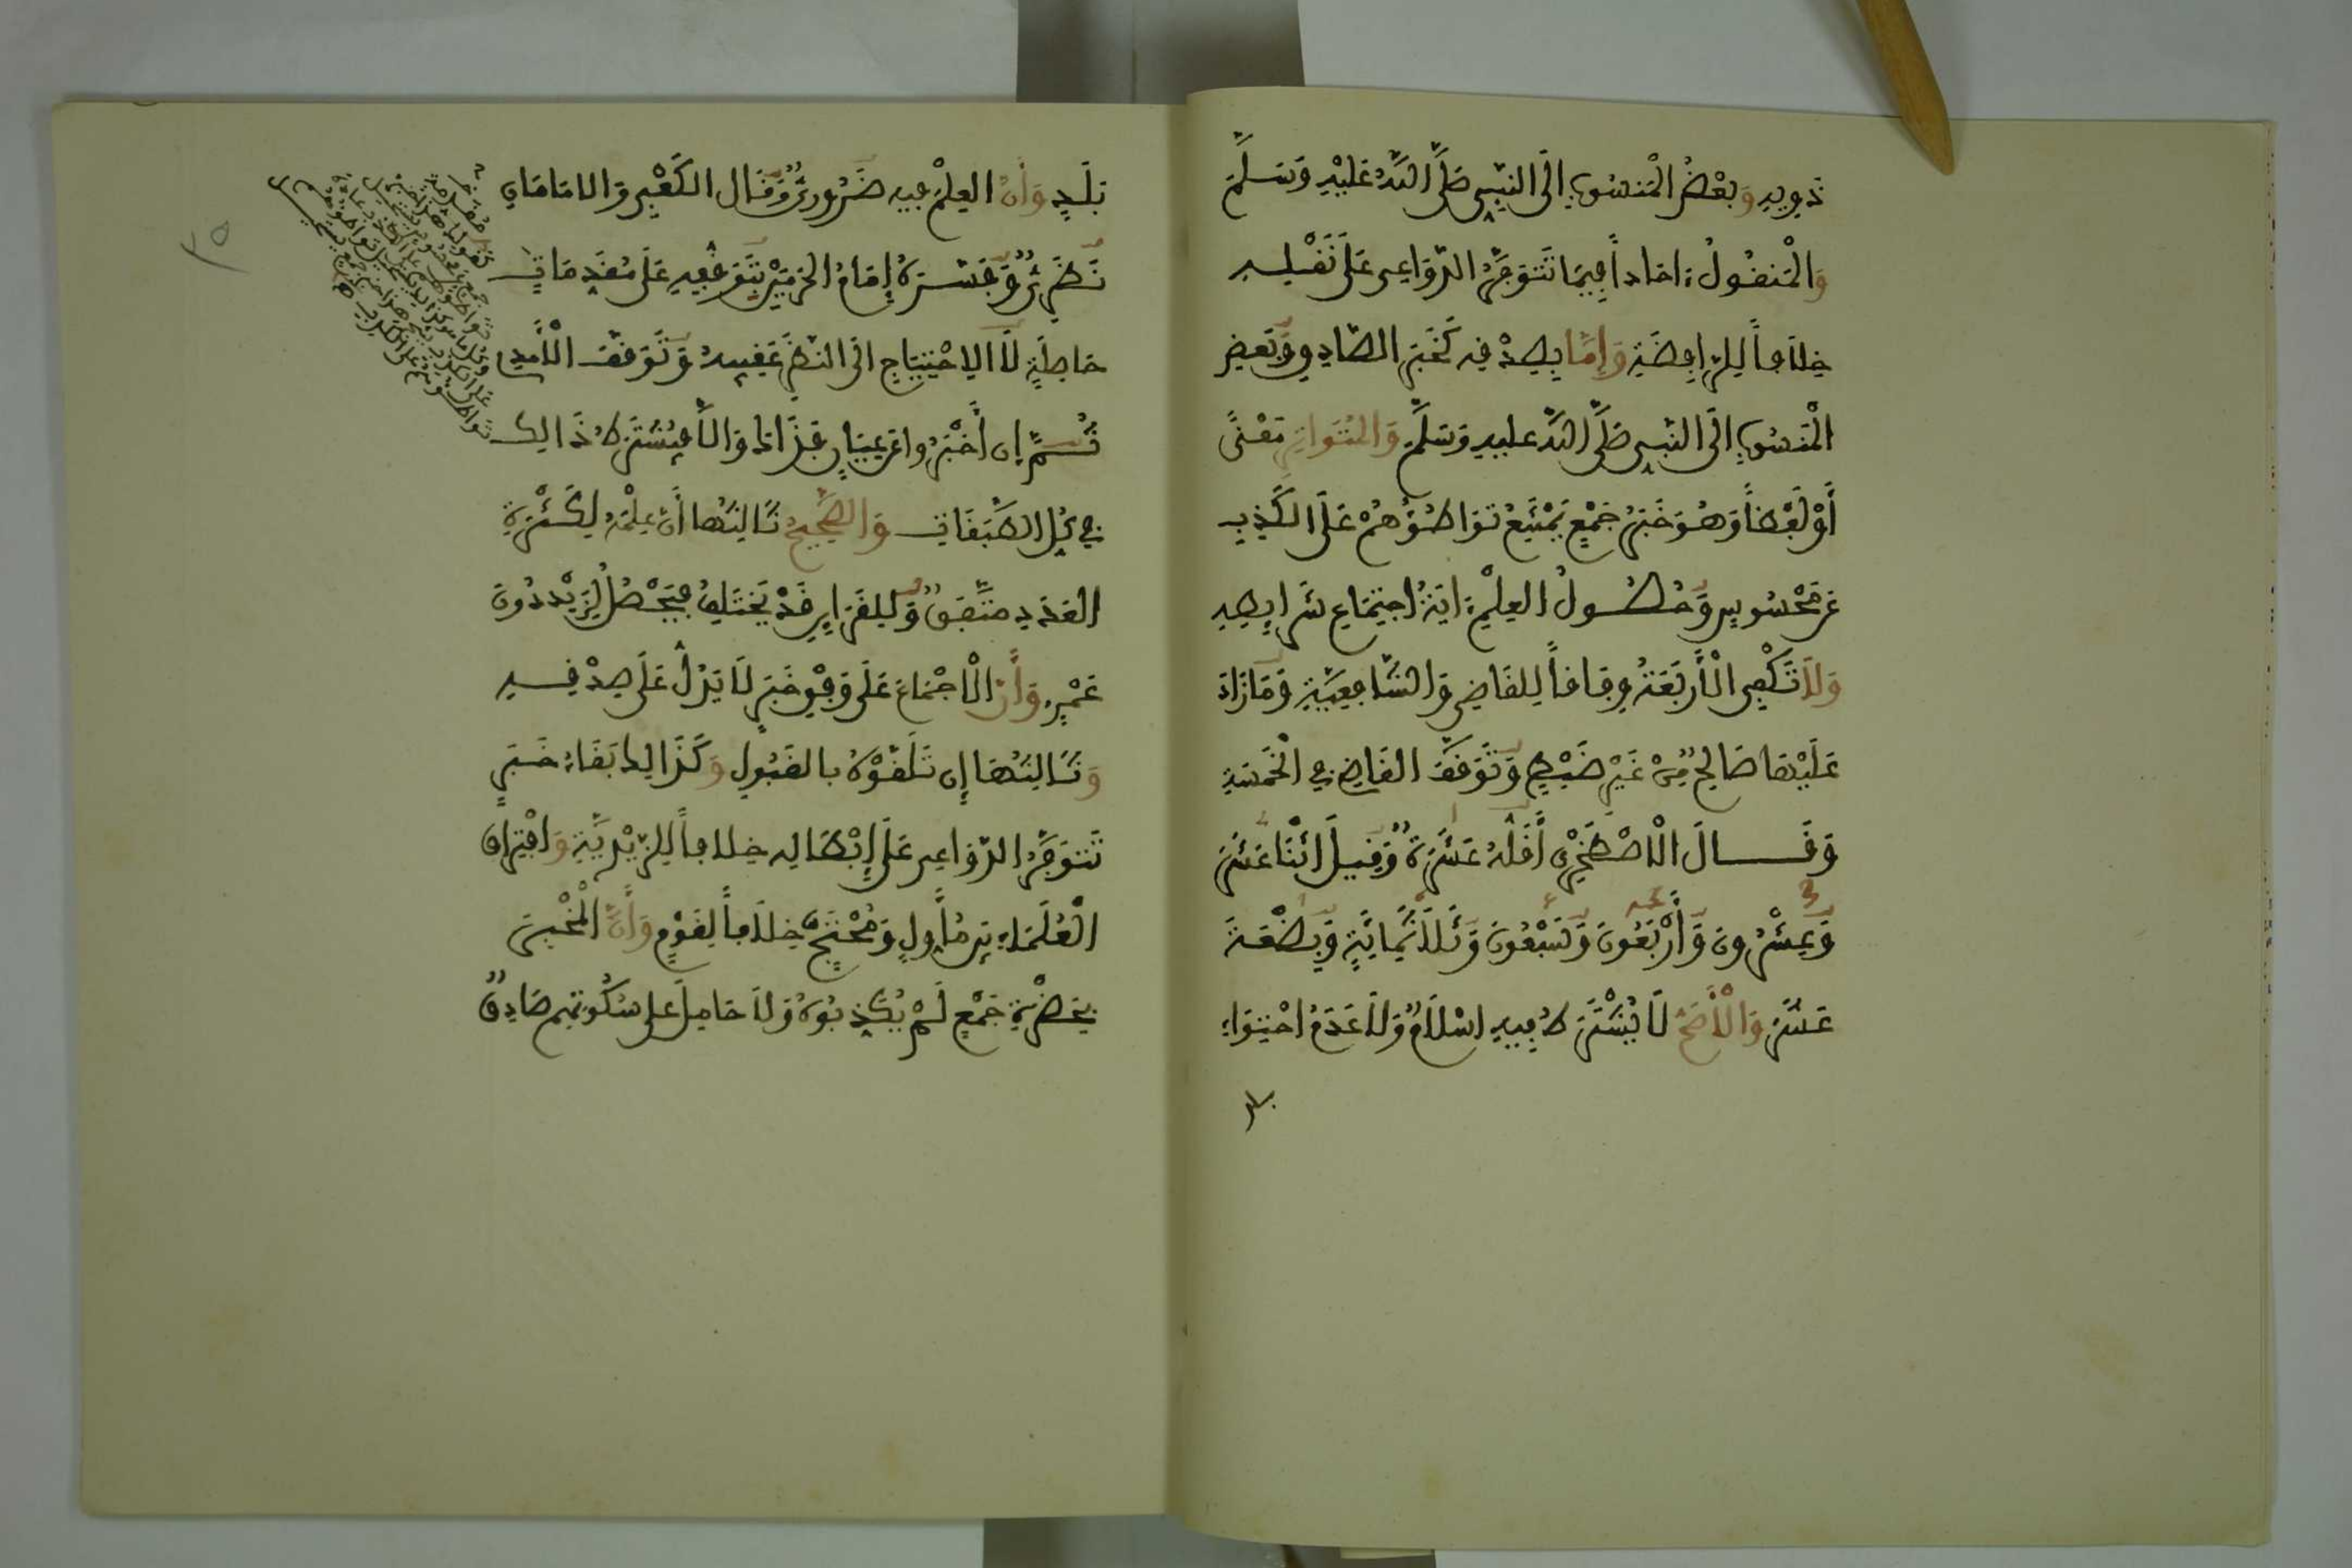 ذويه وَبَعْضُ الْمَنسُوبِ إلَى النَّبِيِّ صَلَّى اللَّهُ عَلَيْهِ وَسَلَّمَ
وَالْمَنقُولُ ءَاحَاداً فِيمَا تَتَوَفَّرُ الدَّوَاعِي عَلَى نَقْلِهِ
خِلَافاً لِلرَّافِضَةِ وَإِمَّا بِصِدْقِهِ كَخَبَرِ الصَّادِقِ وَبَعْضِ
الْمَنسُوبِ إلَى النَّبِيِّ صَلَّى اللَّهُ عليهِ وَسَلَّمَ وَالْمُتَوَاتِرِ مَعْنًى
أَوْ لَفْظاً وَهُوَ خَبَرُ جَمْعٍ يَمْتَنِعُ تَوَاطُؤُهُمْ عَلَى الْكَذِبِ
عَن مَحْسُوسٍ وَحُصُولُ الْعِلْمِ ءَايَةُ اجْتِمَاعِ شَرَايِطِهِ
وَلَا تَكْفِي الْأَرْبَعَةُ وِفَاقاً لِلقَاضِي وَالشَّافِعِيَّةِ وَمَا زَادَ
عَلَيْهَا صَالِحٌ مِنْ غَيْرِ ضَبْطٍ وَتَوَقَّفَ الْقَاضِي فِي الْخَمْسَةِ
وَقَالَ الْاصْطَخْرِيُّ أَقَلُّهُ عَشَرَةٌ وَقِيلَ اثْنَا عَشَرَ
وَعِشْرُونَ وَأَرْبَعُونَ وَسَبْعُونَ وَثَلَاثُمِائَةٍ وَبِضْعَةَ
عَشَرَ وَالْأَصَحُّ لَا يُشْتَرَطُ فِيهِ اسْلَامٌ وَلَا عَدَمُ احْتِوَاءِ
بلد
بَلَدٍ وَأَنَّ الْعِلْمَ فِيهِ ضَرُورِيٌّ وَقَالَ الْكَعْبِي وَالْامَامَانِ
نَظَرِيٌّ وَفَسَّرَهُ إمَامُ الْحَرَمَيْنِ بِتَوَقُّفِهِ عَلَى مُقَدِّمَاتٍ
حَاصِلَةٍ لَا الِاحْتِيَاجِ الَى النَّظَرِ عَقِيبَهُ وَتَوَقَّفَ الْأَمِدِي
ثُمَّ إن أَخْبَرُوا عَن عِيَانٍ فَذَاكَ وَالَّا فَيُشْتَرَطُ ذَالِكَ
فِي كُلِّ الطَّبَقَاتِ وَالصَّحِيحُ ثَالِثُهَا أَنَّ عِلْمَهُ لِكَثْرَةِ
الْعَدَدِ مُتَّفِقٌ وَلِلقَرَايِنِ قَدْ يَخْتَلِفُ فَيَحْصُلُ لِزَيْدٍ دُونَ
عَمْرٍو وَأَنَّ الْاجْمَاعَ عَلَى وَفْقِ خَبَرٍ لَا يَدُلُّ عَلَى صِدْقِهِ
وَثَالِثُهَا إن تَلَقَّوْهُ بِالْقَبُولِ وَكَذَالِكَ بَقَاءُ خَبَرٍ
تَتَوَفَّرُ الدَّوَاعِي عَلَى إبْطَالِهِ خِلَافاً لِلزَّيْدِيَّةِ وَافْتِرَاقُ
الْعُلَمَاءِ بَيْنَ مُأَوِّلٍ وَمُحْتَجٍّ خِلَافاً لِقَوْمٍ وَأَنَّ الْمُخْبِرَ
بِحَضْرَةِ جَمْعٍ لَمْ يُكَذِّبُوهُ وَلَا حَامِلَ عَلَى سُكُوتِهِم صَادِقٌ
٢٥